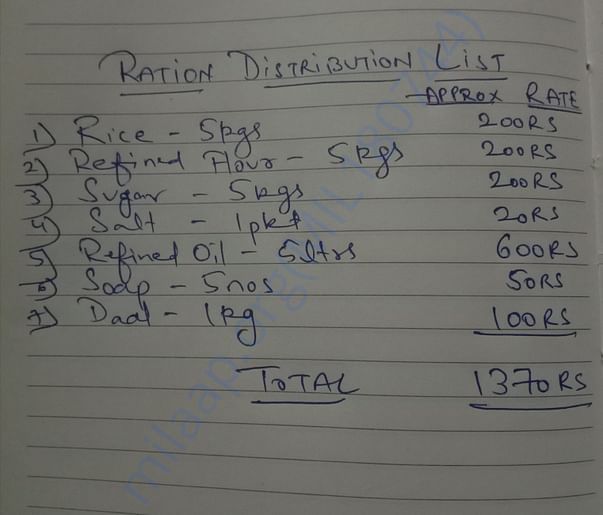 RATION DISTRIBUTION LIST
APPROX RATE
1) Rice - 5kgs 200RS
2) Refined Flour - 5kgs 200RS
3) Sugar - 5kgs 200RS
4) Salt - 1pkt 20RS
5) Refined Oil - 5ltrs 600RS
6) Soap - 5nos 50RS
7) Daal - 1kg 100RS
TOTAL 1370RS
milaap.org(MIL 180744)